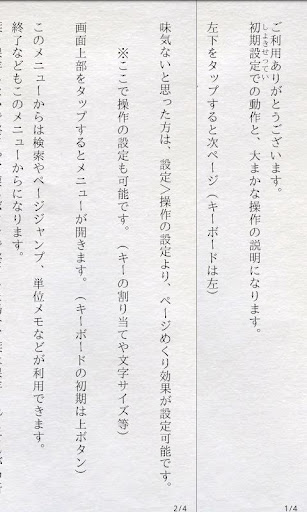 ご利用ありがとうございます。
しょきせってい
初期設定での動作と、大まかな操作の説明になります。
左下をタップすると次ページ(キーボードは左)
1/4
味気ないと思った方は、設定>操作の設定より、ページめくり効果が設定可能です。
※ここで操作の設定も可能です。(キーの割り当てや文字サイズ等)
画面上部をタップするとメニューが開きます。(キーボードの初期は上ボタン)
このメニューからは検索やページジャンプ、単位メモなどが利用できます。
終了などもこのメニューからになります。
2/4